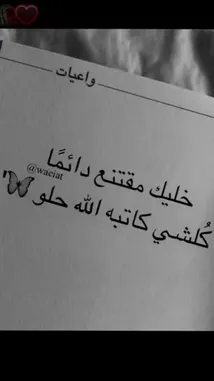 واعيات
خليك مقتنع دائمًا
@waciat
كُلشي كاتبه الله حلو